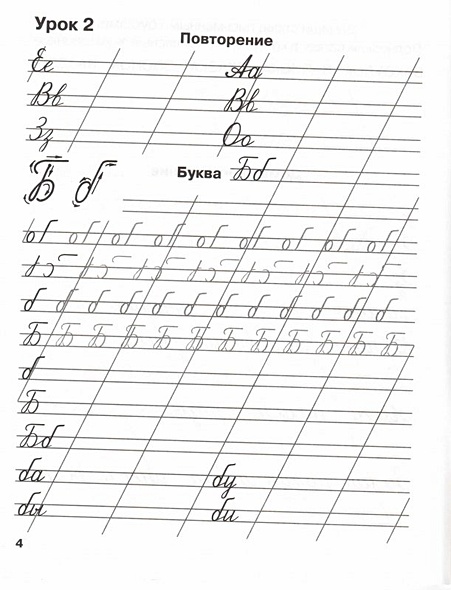 Урок 2
Повторение
Ее Аа
Вв Вв
Зз Оо
Б б Буква Бб
б
Б б б б б б б б б б б
Б Б Б Б Б Б Б Б Б Б Б Б
б
Б
Бб
ба бу
бы би
4